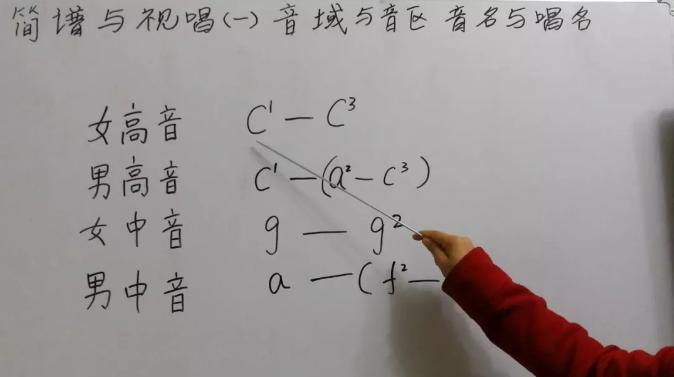 简谱与视唱(一)音域与音区 音名与唱名
女高音 C¹—C³
男高音 C¹—(a²—C³)
女中音 g—g²
男中音 a—(f²—